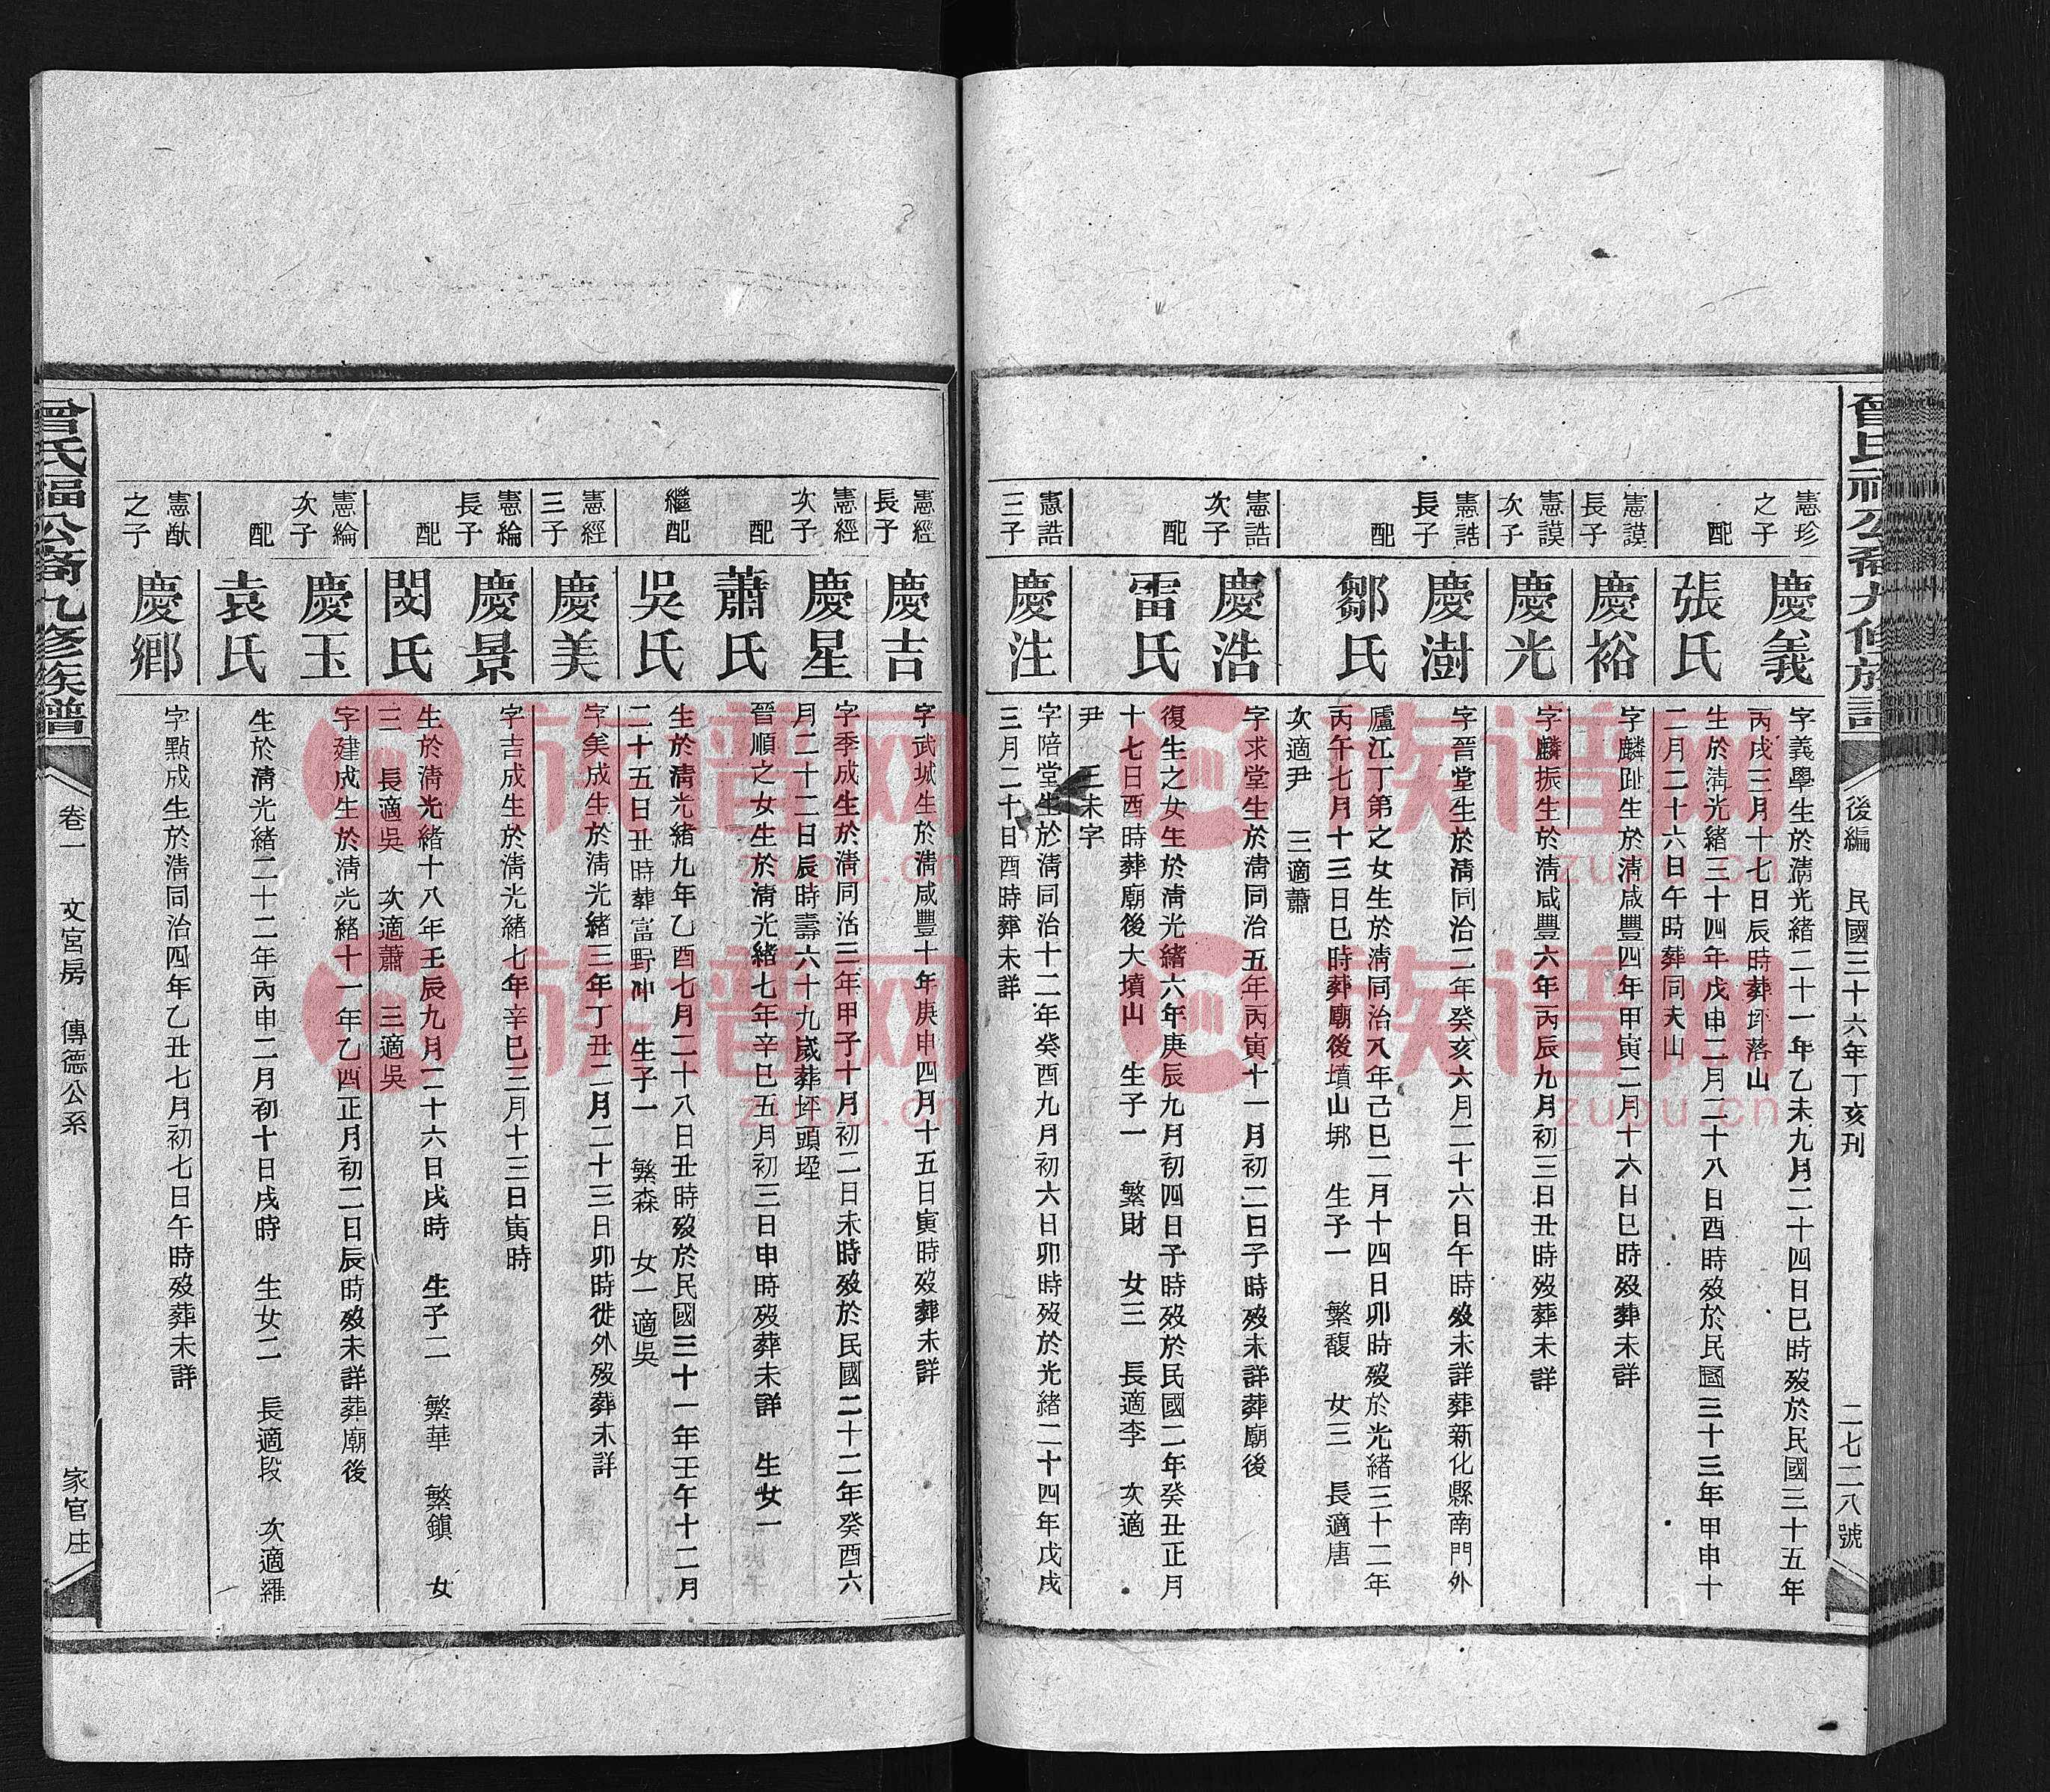 後編　民國三十六年丁亥刊　二七二八號
憲珍之子　慶義　字義學生於淸光緒二十一年乙未九月二十四日巳時歿於民國三十五年
丙戌三月十七日辰時葬坪落山
配　張氏　生於淸光緒三十四年戊申二月二十八日酉時歿於民國三十三年甲申十
二月二十六日午時葬同夫山
憲謨長子　慶裕　字麟趾生於淸咸豐四年甲寅二月十六日巳時歿葬未詳
憲謨次子　慶光　字麟振生於淸咸豐六年丙辰九月初三日丑時歿葬未詳
憲誥長子　慶澍　字晉堂生於淸同治二年癸亥六月二十六日午時歿未詳葬新化縣南門外
配　鄒氏　廬江丁第之女生於淸同治八年己巳二月十四日卯時歿於光緒三十二年
丙午七月十三日巳時葬廟後墳山塝　生子一　繁馥　女三　長適唐
次適尹　三適蕭
憲誥次子　慶浩　字求堂生於淸同治五年丙寅十一月初二日子時歿未詳葬廟後
配　雷氏　復生之女生於淸光緒六年庚辰九月初四日子時歿於民國二年癸丑正月
十七日酉時葬廟後大墳山　生子一　繁財　女三　長適李　次適
尹　三未字
憲誥三子　慶注　字陪堂生於淸同治十二年癸酉九月初六日卯時歿於光緒二十四年戊戌
三月二十日酉時葬未詳
憲經長子　慶吉　字武城生於淸咸豐十年庚申四月十五日寅時歿葬未詳
憲經次子　慶星　字季成生於淸同治三年甲子十月初二日未時歿於民國二十二年癸酉六
月二十二日辰時壽六十九歲葬坪頭堙
配　蕭氏　晉順之女生於淸光緒七年辛巳五月初三日申時歿葬未詳　生女一
繼配　吳氏　生於淸光緒九年乙酉七月二十八日丑時歿於民國三十一年壬午十二月
二十五日丑時葬富野冲　生子一　繁森　女一適吳
憲經三子　慶美　字矣成生於淸光緒三年丁丑二月二十三日卯時徙外歿葬未詳
憲綸長子　慶景　字吉成生於淸光緒七年辛巳三月十三日寅時
配　閔氏　生於淸光緒十八年壬辰九月二十六日戌時　生子二　繁華　繁鎭　女
三　長適吳　次適蕭　三適吳
憲綸次子　慶玉　字建成生於淸光緒十一年乙酉正月初二日辰時歿未詳葬廟後
配　袁氏　生於淸光緒二十二年丙申二月初十日戌時　生女二　長適段　次適羅
憲猷之子　慶鄉　字點成生於淸同治四年乙丑七月初七日午時歿葬未詳
曾氏福公裔九修族譜　卷一　文宮房　傳德公系　家官庄
族譜网
zupu.cn
族譜网
zupu.cn
族譜网
zupu.cn
族譜网
zupu.cn